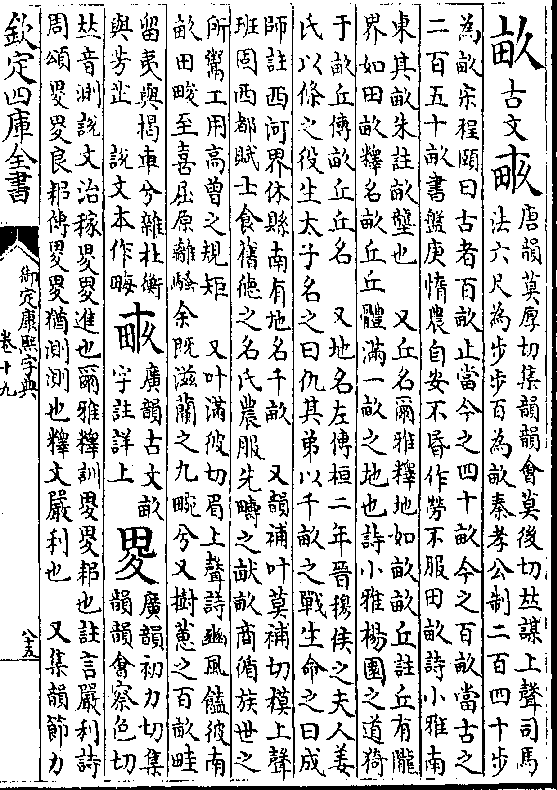 畝 古文畞 唐韻莫厚切集韻韻會莫後切𠀤謀上聲司馬
法六尺為步步百為畝秦孝公制二百四十步
為畝宋程頤曰古者百畝止當今之四十畝今之百畝當古之
二百五十畝書盤庚惰農自安不昏作勞不服田畝詩小雅南
東其畝朱註畝壟也 又丘名爾雅釋地如畝畝丘註丘有隴
界如田畝釋名畝丘丘體滿一畝之地也詩小雅楊園之道猗
于畝丘傳畝丘丘名 又地名左傳桓二年晉穆侯之夫人姜
氏以條之役生太子名之曰仇其弟以千畝之戰生命之曰成
師註西河界休縣南有地名千畝 又韻補叶莫補切模上聲
班固西都賦士食舊德之名氏農服先疇之献畝商循族世之
所鬻工用高曾之規矩 又叶滿彼切眉上聲詩豳風饁彼南
畝田畯至喜屈原離騷余既滋蘭之九畹兮又樹蕙之百畝畦
留夷與揭車兮雜杜衡
與芳芷 說文本作畮
畞 廣韻古文畝
字註詳上
畟 廣韻初力切集
韻韻會察色切
𠀤音測說文治稼畟畟進也爾雅釋訓畟畟耜也註言嚴利詩
周頌畟畟良耜傳畟畟猶測測也釋文嚴利也 又集韻節力
欽定四庫全書
御定康熙字典
卷十九
八十五